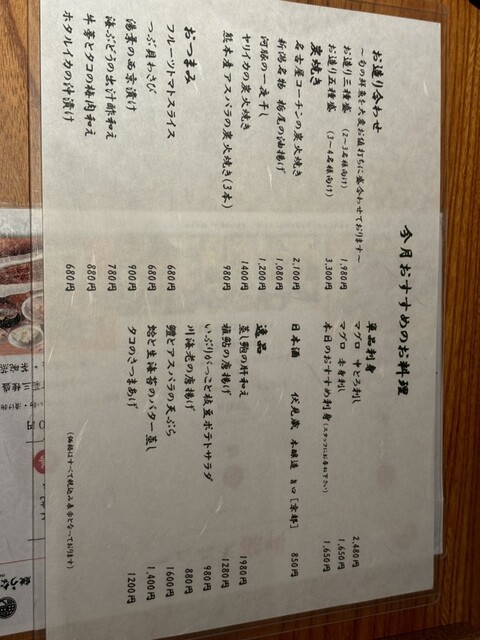 今月おすすめのお料理
お造り合わせ
～旬の鮮魚を大変お値打ちに盛合わせております～
お造り三種盛 (2～3名様向け) 1,980円
お造り五種盛 (3～4名様向け) 3,300円
炭焼き
名古屋コーチンの炭火焼き 2,100円
新潟名物 栃尾の油揚げ 1,080円
河豚の一夜干し 1,200円
ヤリイカの炭火焼き 1400円
熊本産アスパラの炭火焼き(3本) 980円
おつまみ
フルーツトマトスライス 680円
つぶ貝わさび 680円
湯葉の西京漬け 900円
海ぶどうの出汁酢和え 780円
牛蒡とタコの梅肉和え 880円
ホタルイカの沖漬け 680円
単品刺身
マグロ 中とろ刺し 2,480円
マグロ 赤身刺し 1,650円
本日のおすすめ刺身(スタッフにお尋ね下さい) 1,650円
日本酒 伏見蔵 本醸造 旨口[京都] 850円
逸品
蒸し鮑の肝和え 1980円
稚鮎の唐揚げ 1280円
いぶりがっこと枝豆ポテトサラダ 980円
川海老の唐揚げ 880円
鱧とアスパラの天ぷら 1600円
蛤と生海苔のバター蒸し 1,400円
タコのさつまあげ 1200円
(価格はすべて税込み表示となっております)